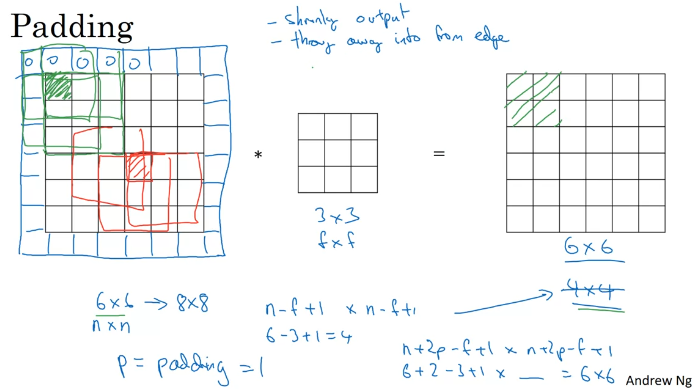 Padding
- shrinky output
- throw away info from edge
0 0 0 0 0
*
=
3 × 3
f × f
6 × 6
4 × 4
6 × 6 → 8 × 8
n × n
n - f + 1 × n - f + 1
6 - 3 + 1 = 4
p = padding = 1
n + 2p - f + 1 × n + 2p - f + 1
6 + 2 - 3 + 1 × __ = 6 × 6
Andrew Ng